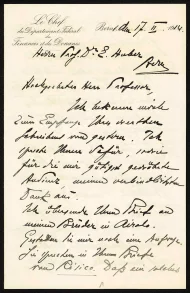 Le Chef
du Département Fédéral
des
Finances et des Douanes
Bern, den 17. II. 1914.
Herrn Prof. Dr. E. Huber
Bern
Hochgeachteter Herr Professor,
Ich bekenne mich
zum Empfange Ihres werthen
Schreibens von gestern. Ich
spreche Ihnen dafür, sowie
für die mir gütigst gewährte
Auskunft, meinen verbindlichsten
Dank aus.
Ich übersende Ihren Brief an
meinen Bruder in Airolo.
Gestatten Sie mir noch eine Anfrage.
Sie sprechen in Ihrem Briefe
vom Risico. Daß ein solches